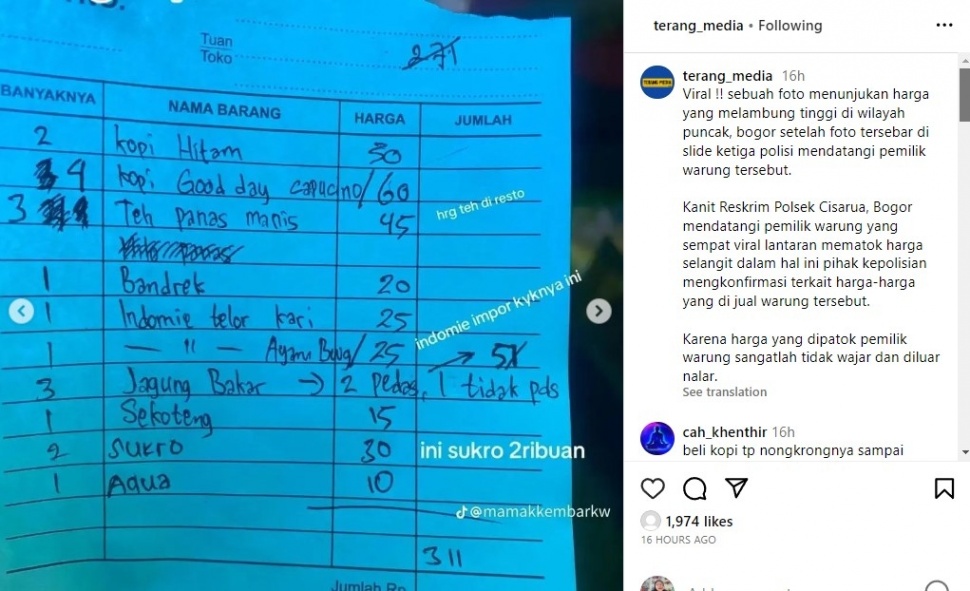 Tuan
Toko
271
BANYAKNYA NAMA BARANG HARGA JUMLAH
2 kopi Hitam 30
4 kopi Good day capucino/ 60
3 Teh panas manis 45
hrg teh di resto
1 Bandrek 20
1 Indomie telor kari 25
indomie impor kyknya ini
1 — " — Ayam Bwg/ 25
3 Jagung Bakar → 2 pedas, 1 tidak pds
1 Sekoteng 15
2 Sukro 30
ini sukro 2ribuan
1 Aqua 10
@mamakkembarkw
311
Jumlah Rp
terang_media • Following
TERANG MEDIA
terang_media 16h
Viral !! sebuah foto menunjukan harga
yang melambung tinggi di wilayah
puncak, bogor setelah foto tersebar di
slide ketiga polisi mendatangi pemilik
warung tersebut.
Kanit Reskrim Polsek Cisarua, Bogor
mendatangi pemilik warung yang
sempat viral lantaran mematok harga
selangit dalam hal ini pihak kepolisian
mengkonfirmasi terkait harga-harga
yang di jual warung tersebut.
Karena harga yang dipatok pemilik
warung sangatlah tidak wajar dan diluar
nalar.
See translation
cah_khenthir 16h
beli kopi tp nongkrongnya sampai
1,974 likes
16 HOURS AGO